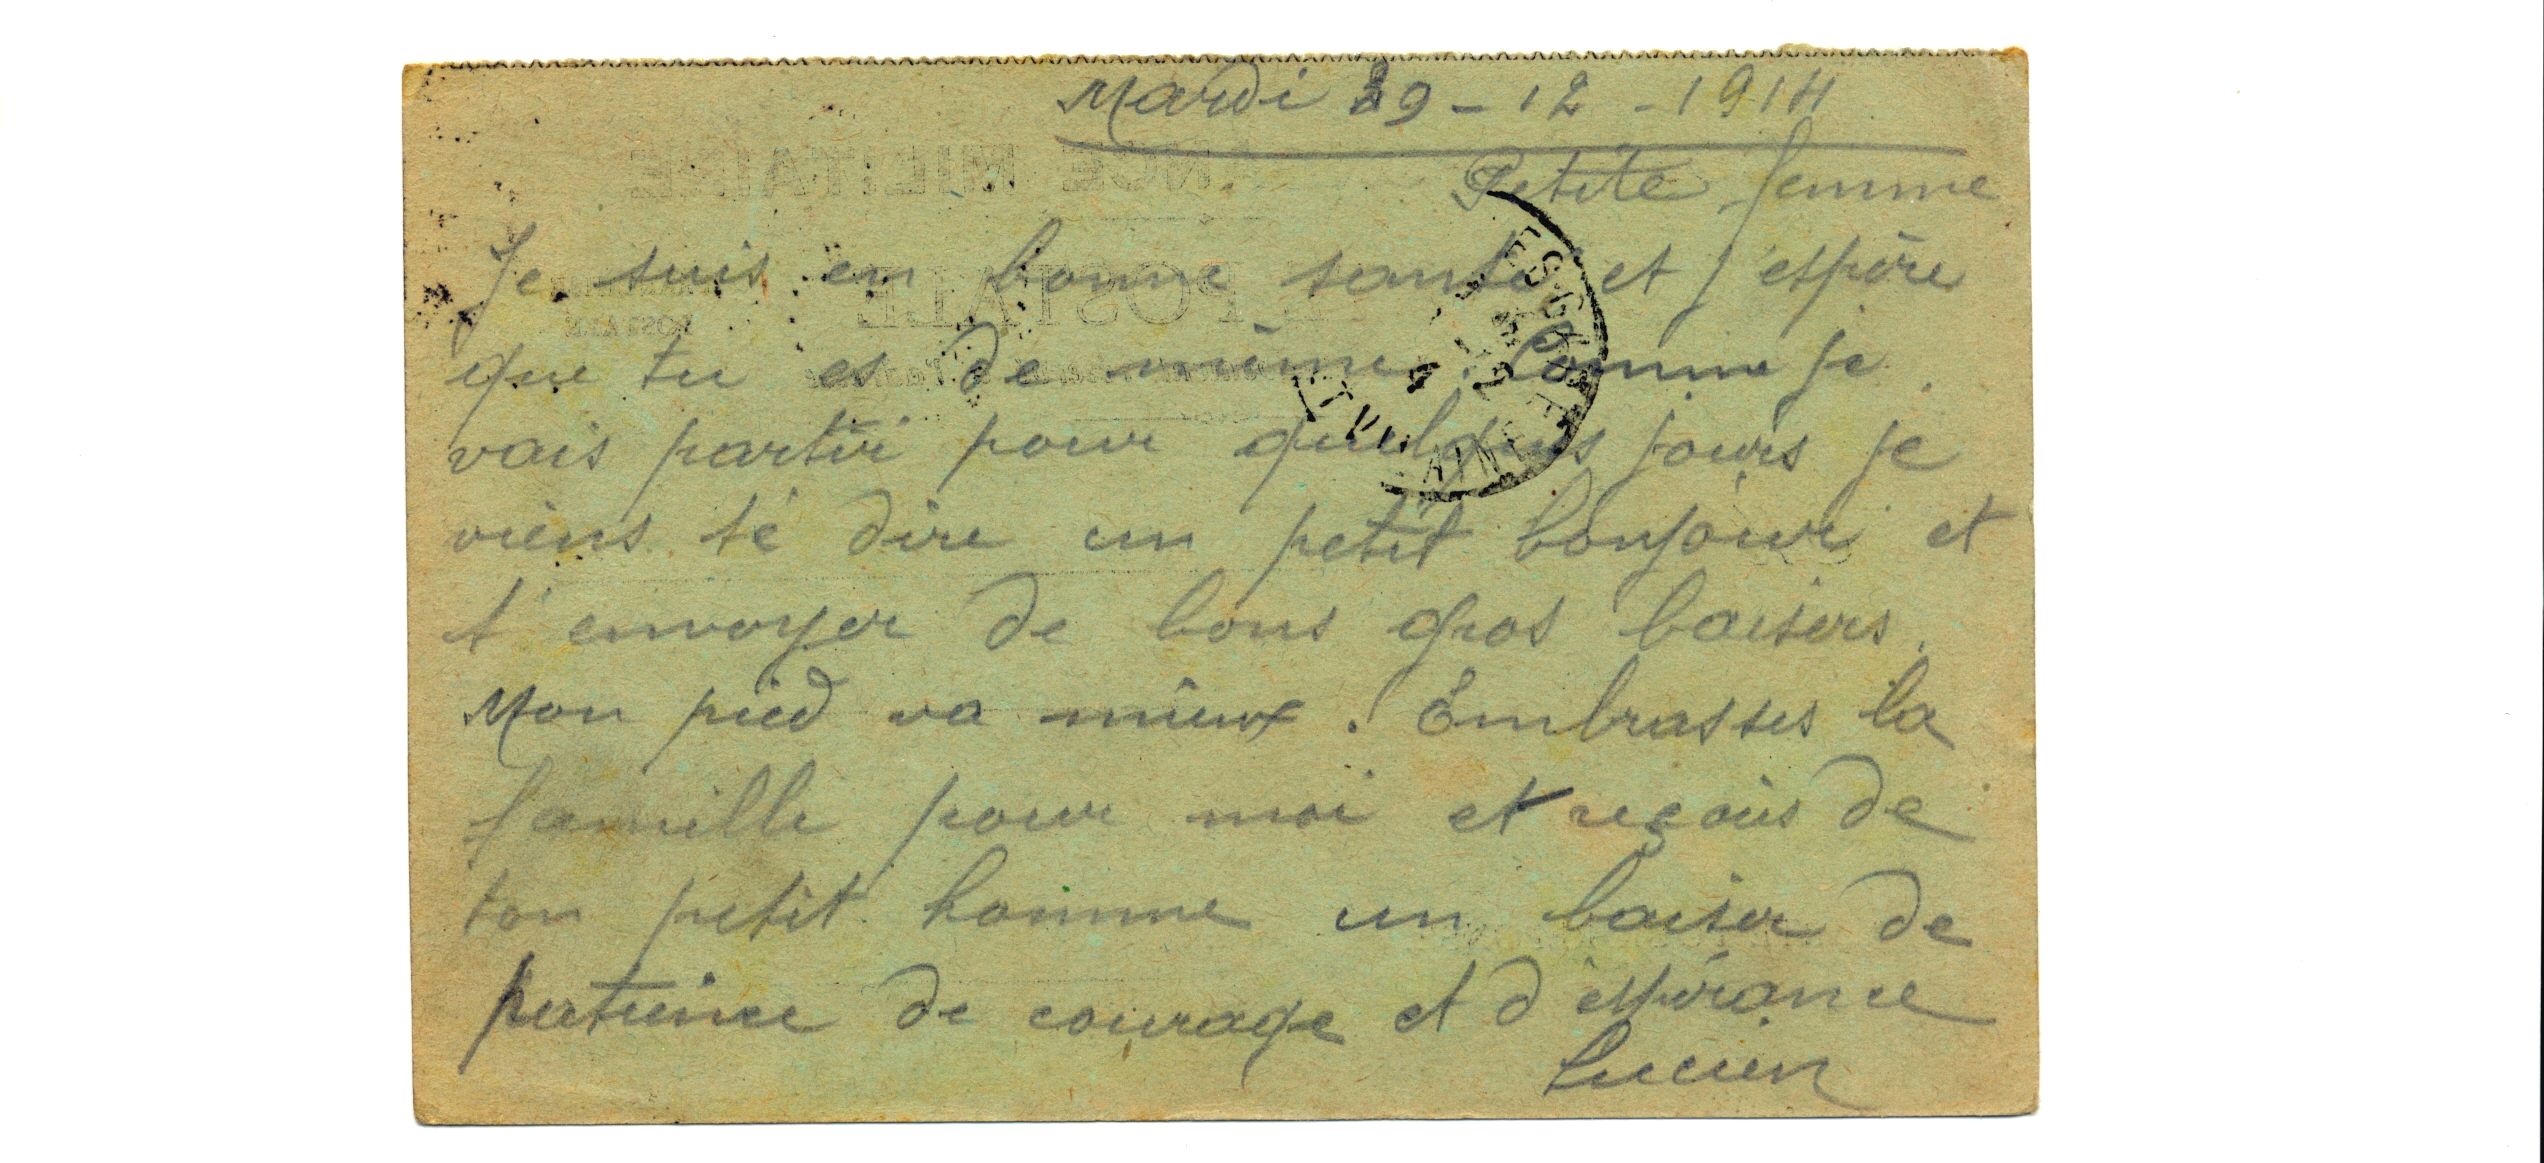 Mardi 29-12-1914
Petite femme
Je suis en bonne santé et j'espère
que tu es de même. Comme je
vais partir pour quelques jours je
viens te dire un petit bonjour et
t'envoyer de bons gros baisers.
Mon pied va mieux. Embrasses la
famille pour moi et reçois de
ton petit homme un baiser de
patience de courage et d'espérance
Lucien